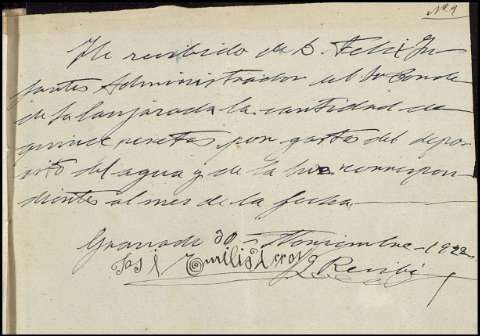 Nº 9
He recibido de D. Felix In
fantes Administrador del Sr Conde
de la Lanjarada la cantidad de
quince pesetas por gastos del depo-
sito del agua y de la luz correspon
dientes al mes de la fecha
Granada 30 - Noviembre - 1922
Emilio
Recibí